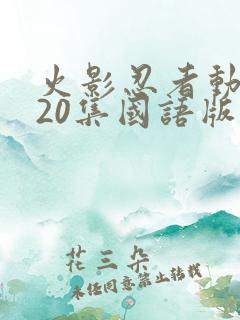 火影忍者動
20集國語版
花三朵
未經同意禁止轉載